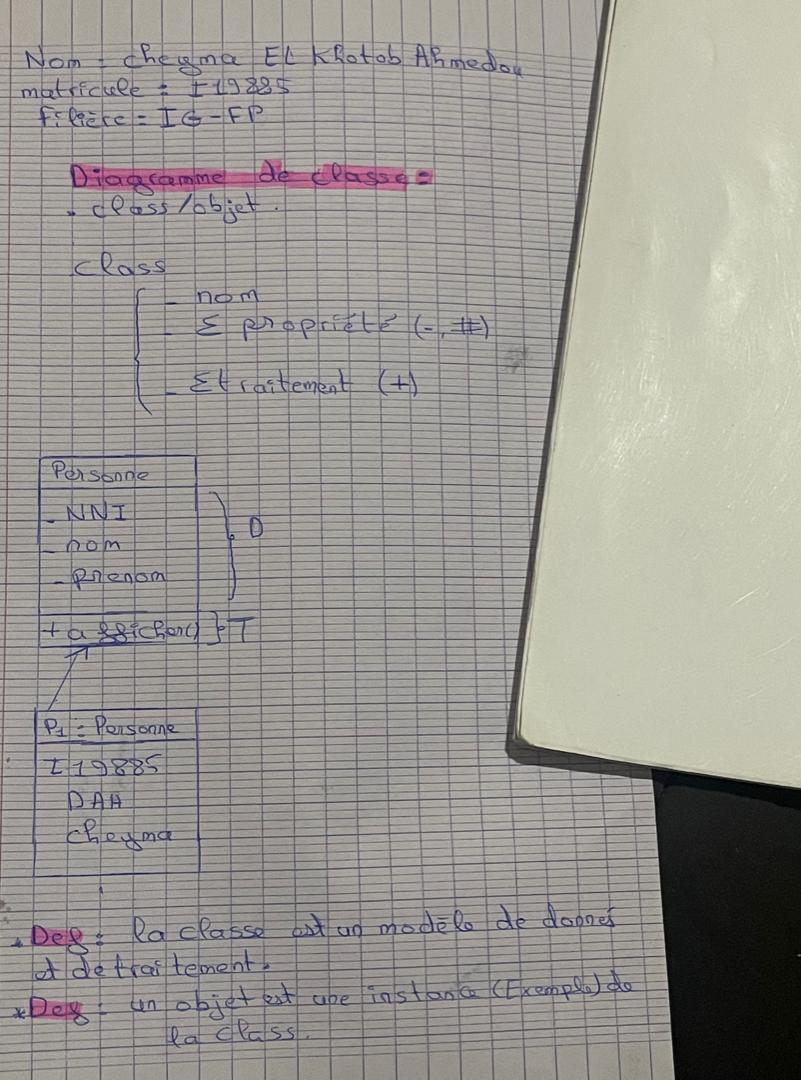 Nom = cheyma EL Khotob Ahmedou
matricule = I19885
filière = IG-FP
Diagramme de classe =
. class/objet.
class
- nom
- Σ propriété (-, #)
- Σt raitement (+)
Personne
- NNI
- nom
- prenom
D
+ afficher() } T
P1 = Personne
I19885
DAH
cheyma
. Def : la classe est un modèle de donnés
et de traitement.
* Def : un objet est une instance (Exemple) de
la class.